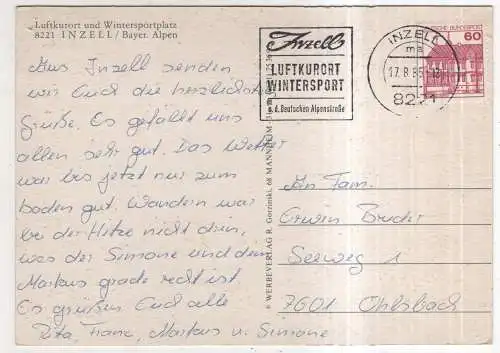 Luftkurort und Wintersportplatz
8221 INZELL/Bayer. Alpen
Aus Inzell senden
wir Euch die herzlichsten
Grüße. Es gefällt uns
allen sehr gut. Das Wetter
war bis jetzt nur zum
baden gut. Wandern war
bei der Hitze nicht drin,
was der Simone und dem
Markus grade recht ist
Es grüßen Euch alle
Rita, Franz, Markus u. Simone
© WERBEVERLAG R. Gorzinski, 68 MANNHEIM
Inzell
LUFTKURORT
WINTERSPORT
a. d. Deutschen Alpenstraße
INZELL
ma
8221
DEUTSCHE BUNDESPOST
60
An Fam.
Erwin Bruder
Seeweg 1
7601 Ohlsbach